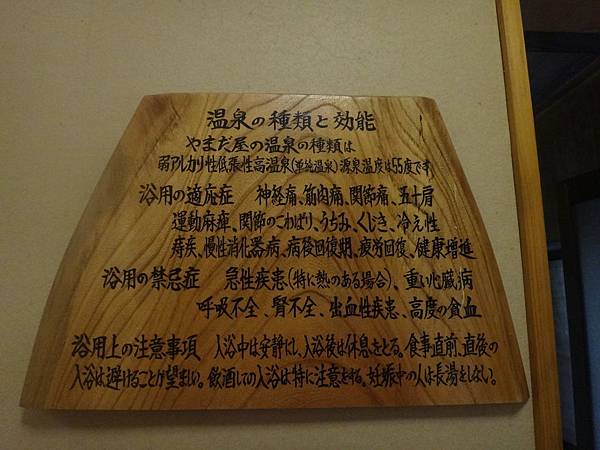 温泉の種類と効能
やまだ屋の温泉の種類は
弱アルカリ性低張性高温泉(単純温泉)源泉温度は55度です
浴用の適応症 神経痛、筋肉痛、関節痛、五十肩
運動麻痺、関節のこわばり、うちみ、くじき、冷え性
痔疾、慢性消化器病、病後回復期、疲労回復、健康増進
浴用の禁忌症 急性疾患(特に熱のある場合)、重い心臓病
呼吸不全、腎不全、出血性疾患、高度の貧血
浴用上の注意事項 入浴中は安静にし、入浴後は休息をとる。食事直前、直後の
入浴は避けることが望ましい。飲酒しての入浴は特に注意をする。妊娠中の人は長湯をしない。